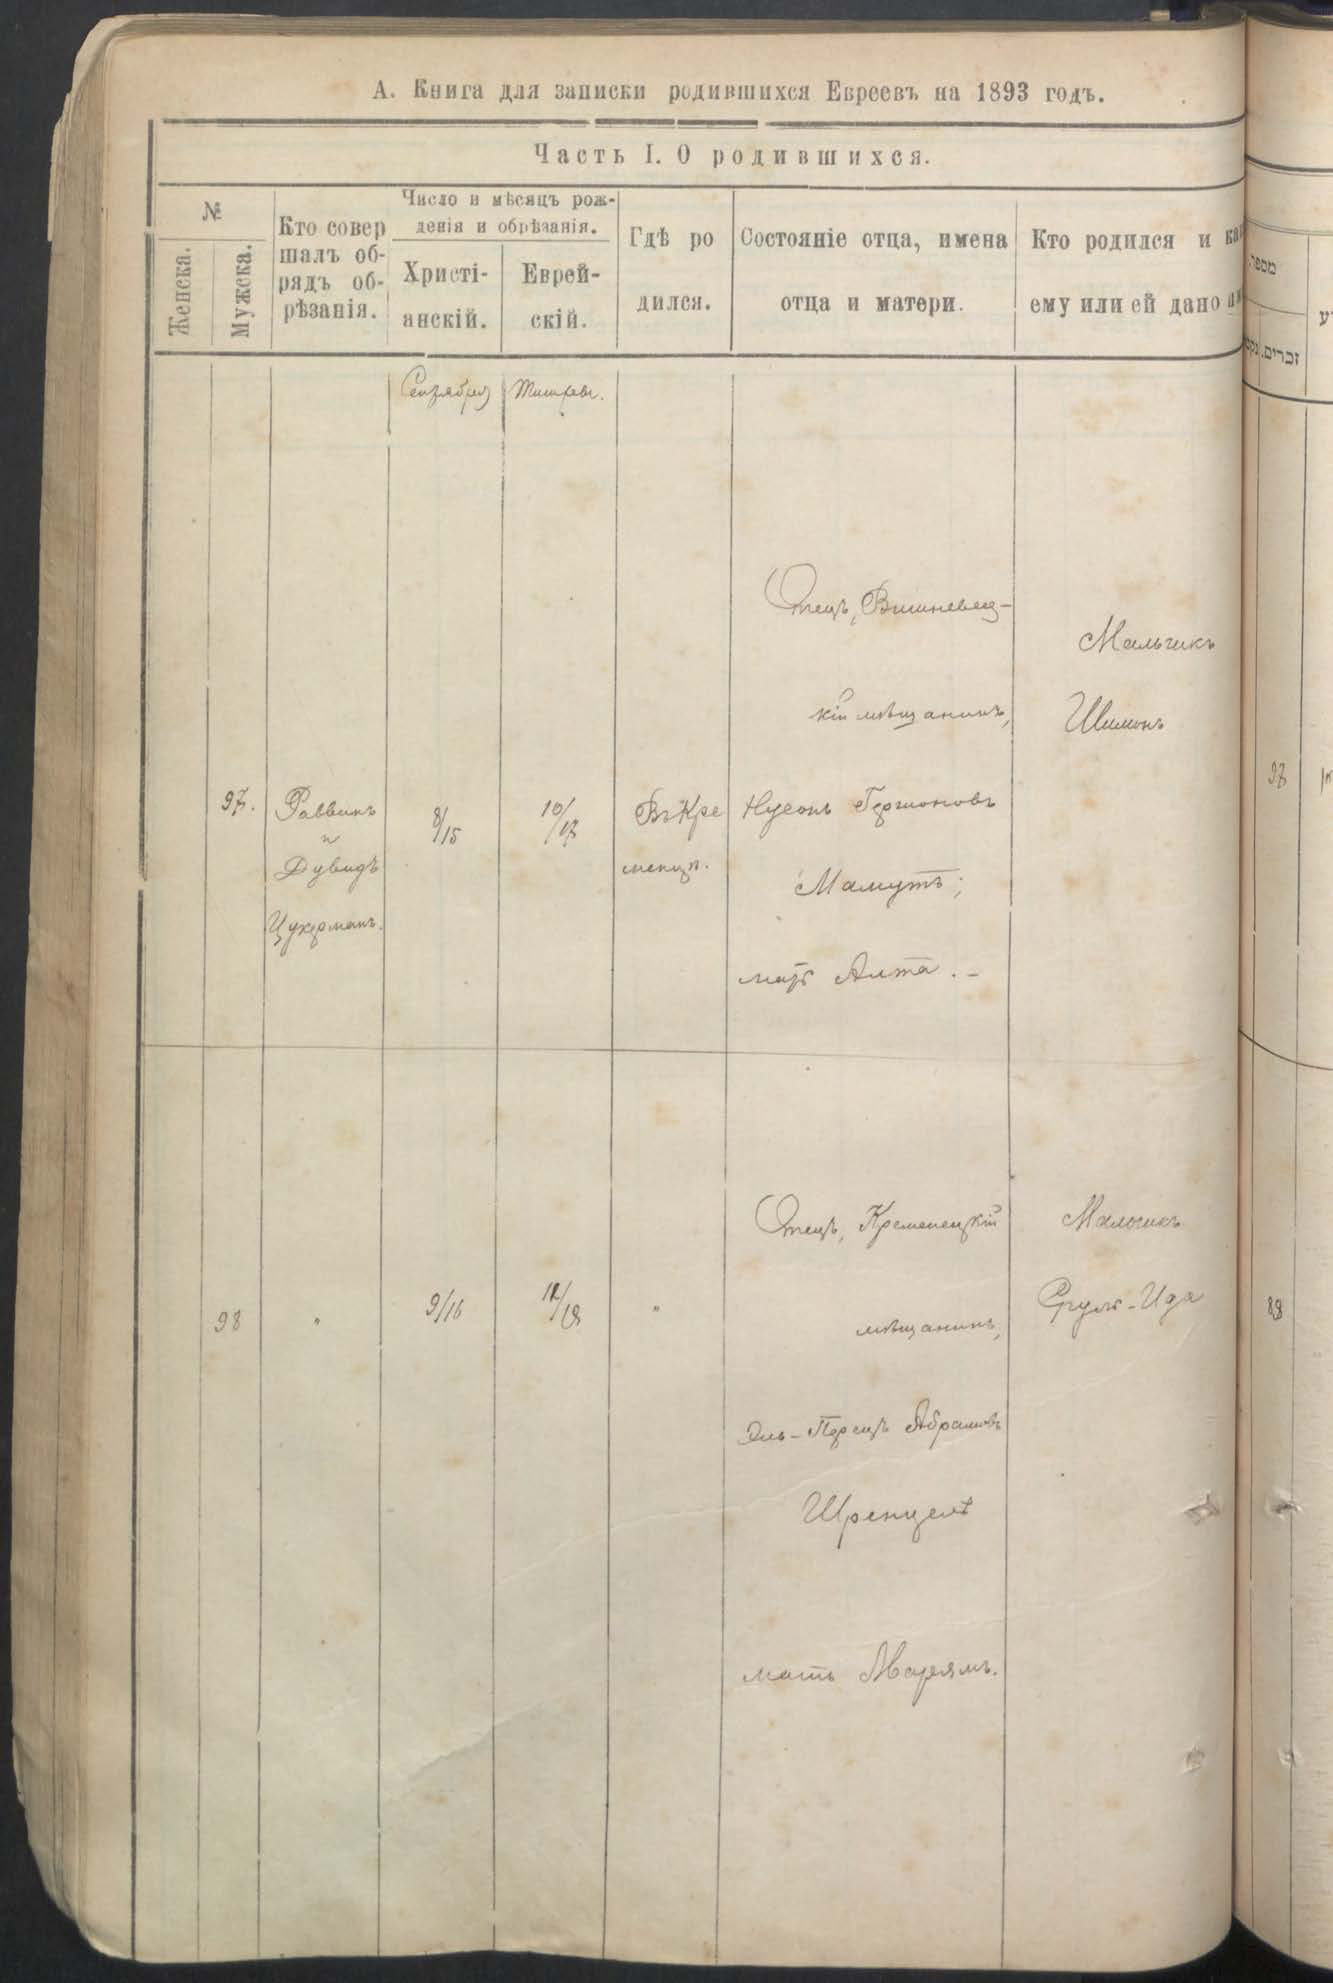 А. Книга для записки родившихся Евреевъ на 1893 годъ.
Часть I. О родившихся.
№
Женска.
Мужска.
Кто совер
шалъ об-
рядъ об-
рѣзанія.
Число и мѣсяцъ рож-
денія и обрѣзанія.
Христі-
анскій.
Еврей-
скій.
Гдѣ ро
дился.
Состояніе отца, имена
отца и матери.
Кто родился и ка
ему или ей дано
Сентября
97.
Раввинъ
и
Дувидъ
Цукерманъ.
8/15
10/17
Въ Кре
менцѣ.
Отецъ, Вишневец-
кій мѣщанинъ,
Нусонъ Гершоновъ
Мамутъ;
мать Алта. -
Мальчикъ
Шимонъ
98
"
9/16
"
Отецъ, Кременецкій
мѣщанинъ,
Эль-Перецъ Абрамовъ
Шренцель
мать Марьямъ.
Мальчикъ
Сруль-Ида
מספר
זכרים.
97
98